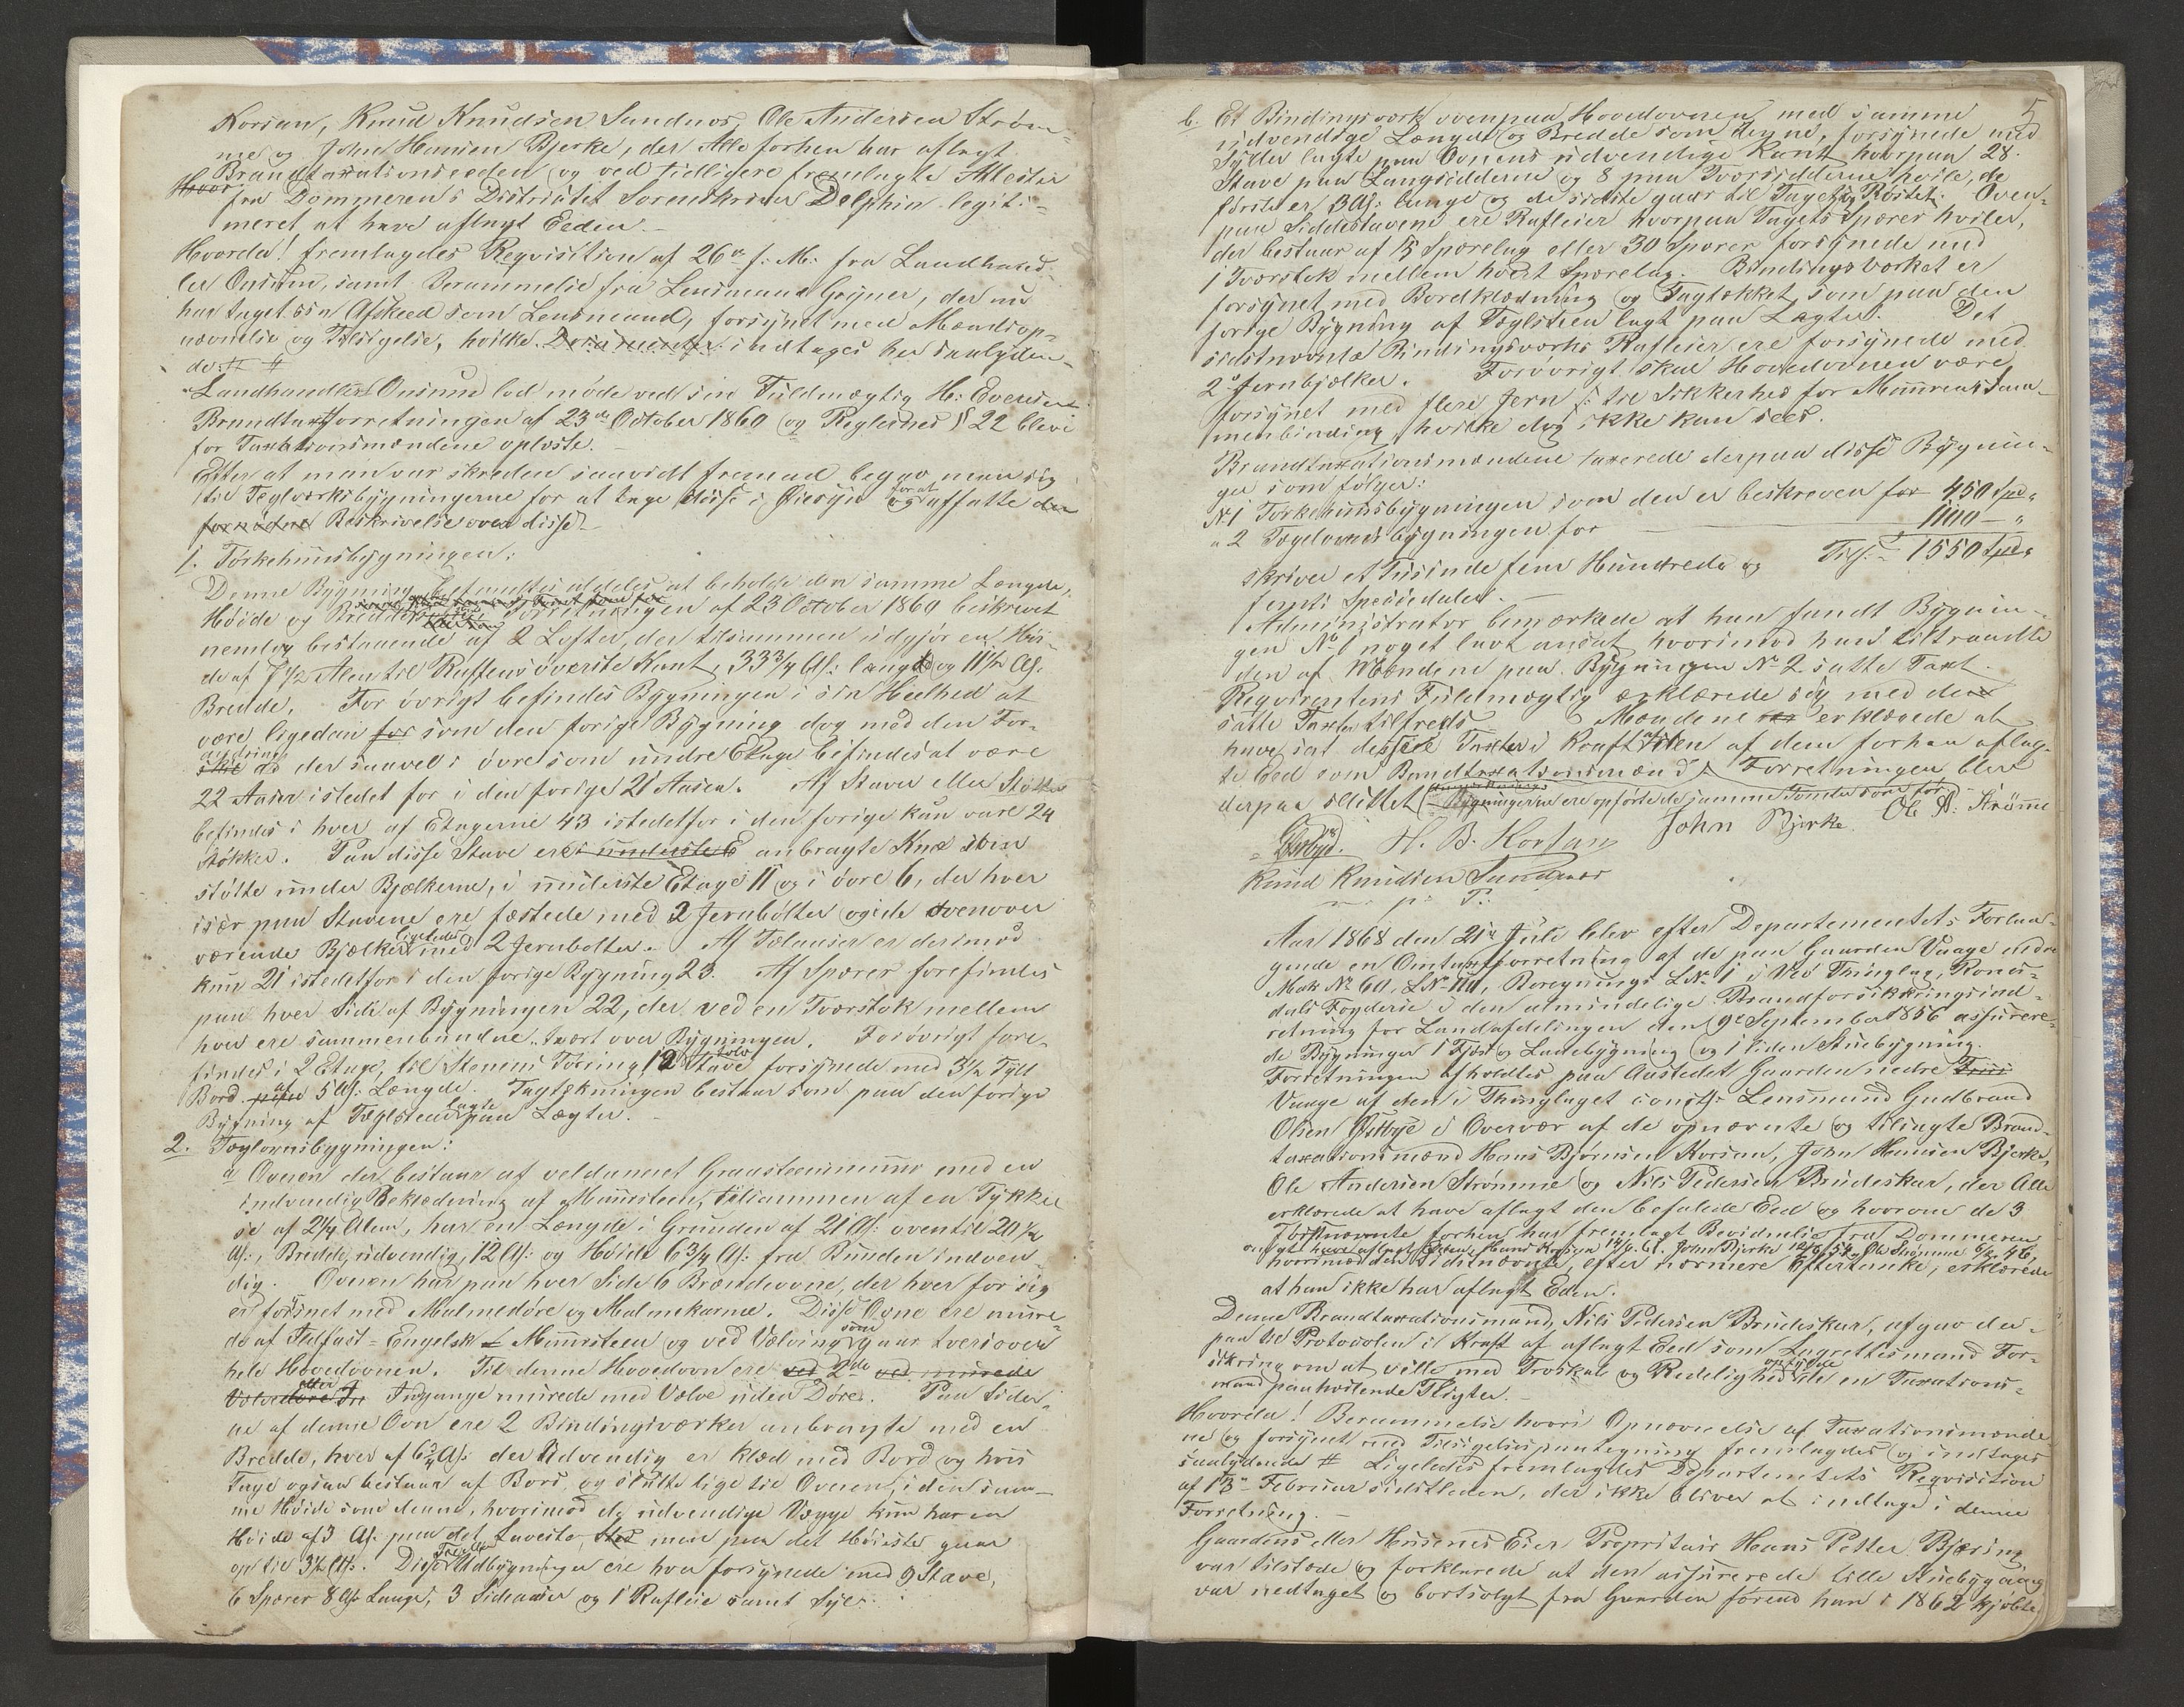 Korsan, Knud Knudsen Sundnæs, Ole Andersen Strøm-
me og John Hansen Bjerke, der Alle forhen har aflagt
Brandtaxationseeden og ved tidligere fremlagte Attester
fra Dommeren i Districtet Sorenskriver Delphin legiti-
meret at have aflagt Eeden.
Hvorda! fremlagdes Reqvisition af 26de f. M. fra Landhand-
ler Onsum, samt Berammelse fra Lensmand Gryner, der nu
har taget sin Afskeed som Lensmand, forsynet med Mændsop-
nævnelse og Tilsigelse, hvilke Documenter indtages her saalyden-
de: # #
Landhandler Onsum lod møde ved sin Fuldmægtig H. Evensen
Brandtaxtforretningen af 23de October 1860 og Reglernes § 22 blev
for Taxationsmændene oplæste.
Efter at man var skreden saavidt fremad begav man sig
til Teglværksbygningerne for at tage disse i Øiesyn og for at affatte den
fornødne Beskrivelse over disse.
1. Tørkehuusbygningen:
Denne Bygning befandtes aldeles at beholde den samme Længde,
Høide og Bredde Forretningen af 23 October 1860 beskrevet
nemlig bestaaende af 2 Lofter, der tilsammen udgjør en Høi-
de af 7 1/2 Alen til Raftens øverste Kant, 33 3/4 Al: lang og 11 1/2 Al:
Bredde. For øvrigt befindes Bygningen i sin Heelhed at
være ligedan for som den forige Bygning dog med den For-
andring at der saavel i øvre som undre Etage befindes at være
22 Aaser istedet for i den forige 21 Aaser. Af Staver eller Støtter
befindes i hver af Etagerne 43 istedetfor i den forige kun vare 24
Støkker. Paa disse Stave ere i underste E anbragte Knæ som
støtte under Bjelkerne, i underste Etage 11 og i øvre 6, der hver
især paa Stavene ere fæstede med 2 Jernbolter og i de ovenover
værende Bjelker ligeledes med 2 Jernbolter. Af Tølaaser er derimod
kun 21 istedetfor i den forige Bygning 23. Af Spærer forefindes
paa hver Side af Bygningen 22, der ved en Tværstok mellem
hver ere sammenbundne tvært over Bygningen. Forøvrigt fore-
findes i 2 Etage, til Stenens Tørring 12 tolv Stave forsynede med 3 1/2 Tylt
Bord af 5 Al: Længde. Tagtækningen bestaar som paa den forige
Bygning af Teglsteen lagte paa Lægter.
2. Teglovnsbygningen:
a Ovnen der bestaar af veldannet Graasteensmuur med en
indvendig Beklædning af Muursteen, tilsammen af en Tykkel-
se af 2 1/4 Alen, har en Længde i Grunden af 21 Al: oventil 20 1/2
Al:, Bredde, udvendig, 12 Al: og Høide 6 3/4 Al: fra Bunden indven-
dig. Ovnen har paa hver Side 6 Brændeovne, der hver for sig
er forsynet med Malmedøre og Malmekarme. Disse Ovne ere mure-
de af Ildfast-Engelsk Muursteen og ved Vælving som gaar tversover
hele Hovedovnen. Til denne Hovedovn ere ved 2de ved murede
eller Indgange murede med Vælve uden Døre. Paa Sider-
ne af denne Ovn ere 2 Bindingsværker anbragte med en
Bredde, hver af 6 3/4 Al: der udvendig er klæd med Bord og hvis
Tage ogsaa bestaar af Bord, og slutte lige til Ovnen, i den sam-
me Høide som denne, hvorimod dg udvendige Vægge kun har en
Høide af 3 Al: paa det Laveste, Sted men paa det Høieste gaar
op til 3 1/2 Al:. Disse Udbygninger ere hver forsynede med 9 Stave,
6 Spærer 8 Al: Lange, 3 Sideaaser og 1 Rafleie samt Syle.
5
b. Et Bindingsverk ovenpaa Hovedovnen med samme
udvendige Længde og Bredde som denne, forsynede med
Sylder lagte paa Ovnens udvendige Kant hvorpaa 28
Stave paa Langsidderne og 8 paa Tversidderne hvile, de
første er 3 Al: lange og de sidste gaar til Taget og Røstet. Oven-
paa Sidestavene ere Rafleier hvorpaa Tagets Spærer hviler,
der bestaar af 15 Spærelag eller 30 Spærer forsynede med
1 Tværstok mellem hvert Spærelag. Bindingsværket er
forsynet med Bordklædning og Tagtækket, som paa den
forige Bygning af Teglsteen lagt paa Lægter. Det
sidstnævnte Bindingsværks Rafleier ere forsynede med
2de Jernbjælker. Forøvrigt skal Hovedovnen være
forsynet med flere Jern i til Sikkerhed for Muurens Sam-
menbinding, hvilke dog ikke kan sees.
Brandtaxationsmændene taxerede derpaa disse Bygnin-
ger som følger:
No 1 Tørkehuusbygningen som den er beskreven for 450 Spd "
" 2 Teglovnsbygningen for — 1100 — "
Tils. 1550 Spd "
skriver et Tusinde fem Hundrede og
femti Speciedaler.
Administrator bemærkede at han fandt Bygnin-
gen No 1 noget lavt ansat, hvorimod han tiltraadte
den af Mændene paa Bygningen No 2 satte Taxt.
Reqvirentens Fuldmægtig erklærede sig med den
satte Taxter tilfreds Mændene erklærede at
have sat dessse Taxter i Kraft af den af dem forhen aflag-
te Eed som Bandtaxationsmænd. Forretningen blev
derpaa sluttet (Bygningerne ere opførte de samme Tomter som før)
Østbye. H. B. Korsan John Bjerke. Ole A. Strømme
Knud Knudsen Sundnæs
m. p. P.
Aar 1868 den 21de Juli blev efter Departementets Forlan-
gende en Omtaxtforretning af de paa Gaarden Vaage nedre
Mat. No 60, L No 110, Beregnings L No 1 i Veø Thinglag, Roms-
dals Fogderie i den almindelige Brandforsikkringsind-
retning for Landafdelingen den 9de September 1856 assurere-
de Bygninger 1 Fjøs og Ladebygning og 1 liden Stuebygning.
Forretningen afholdtes paa Aastedet Gaarden nedre
Vaage af den i Thinglaget const. Lensmand Gudbrand
Olsen Østbye i Overvær af de opnævnte og tilsagte Brand-
taxationsmænd Hans Bjørnsen Korsan, John Hansen Bjerke,
Ole Andersen Strømme og Nils Pedersen Brudeskar, der Alle
erklærede at have aflagt den befalede Eed og hvorom de 3
Førstnævnte forhen har fremlagt Bevidnelse fra Dommeren
Hans Korsan 14/9. 61. John Bjerke 12/6 54, Ole Strømme 6/2. 46,
hvorimod den Sidstnævnte, efter nærmere Eftertanke, erklærede
at han ikke har aflagt Eden.
Denne Brandtaxationsmand, Nils Pedersen Brudeskar, afgav der-
paa til Protocolen i Kraft af aflagt Eed som Lagrettesmand For-
sikring om at ville med Troskab og Redelighed opfylde de en Taxations-
mand paahvilende Pligter.
Hvorda! Berammelse hvori Opnævnelse af Taxationsmænde-
ne og forsynet med Tilsigelsespaategning fremlagdes og indtages
saalydende # Ligeledes fremlagdes Departementets Reqvisition
af 13de Februar sidstleden, der ikke bliver at indtage i denne
Forretning.
Gaardens eller Husenes Eier Propritair Hans Petter Bjæring
var tilstæde og forklarede at den assurerede lille Stuebygning
var nedtaget og bortsolgt fra Gaarden førend han i 1862 kjøbte